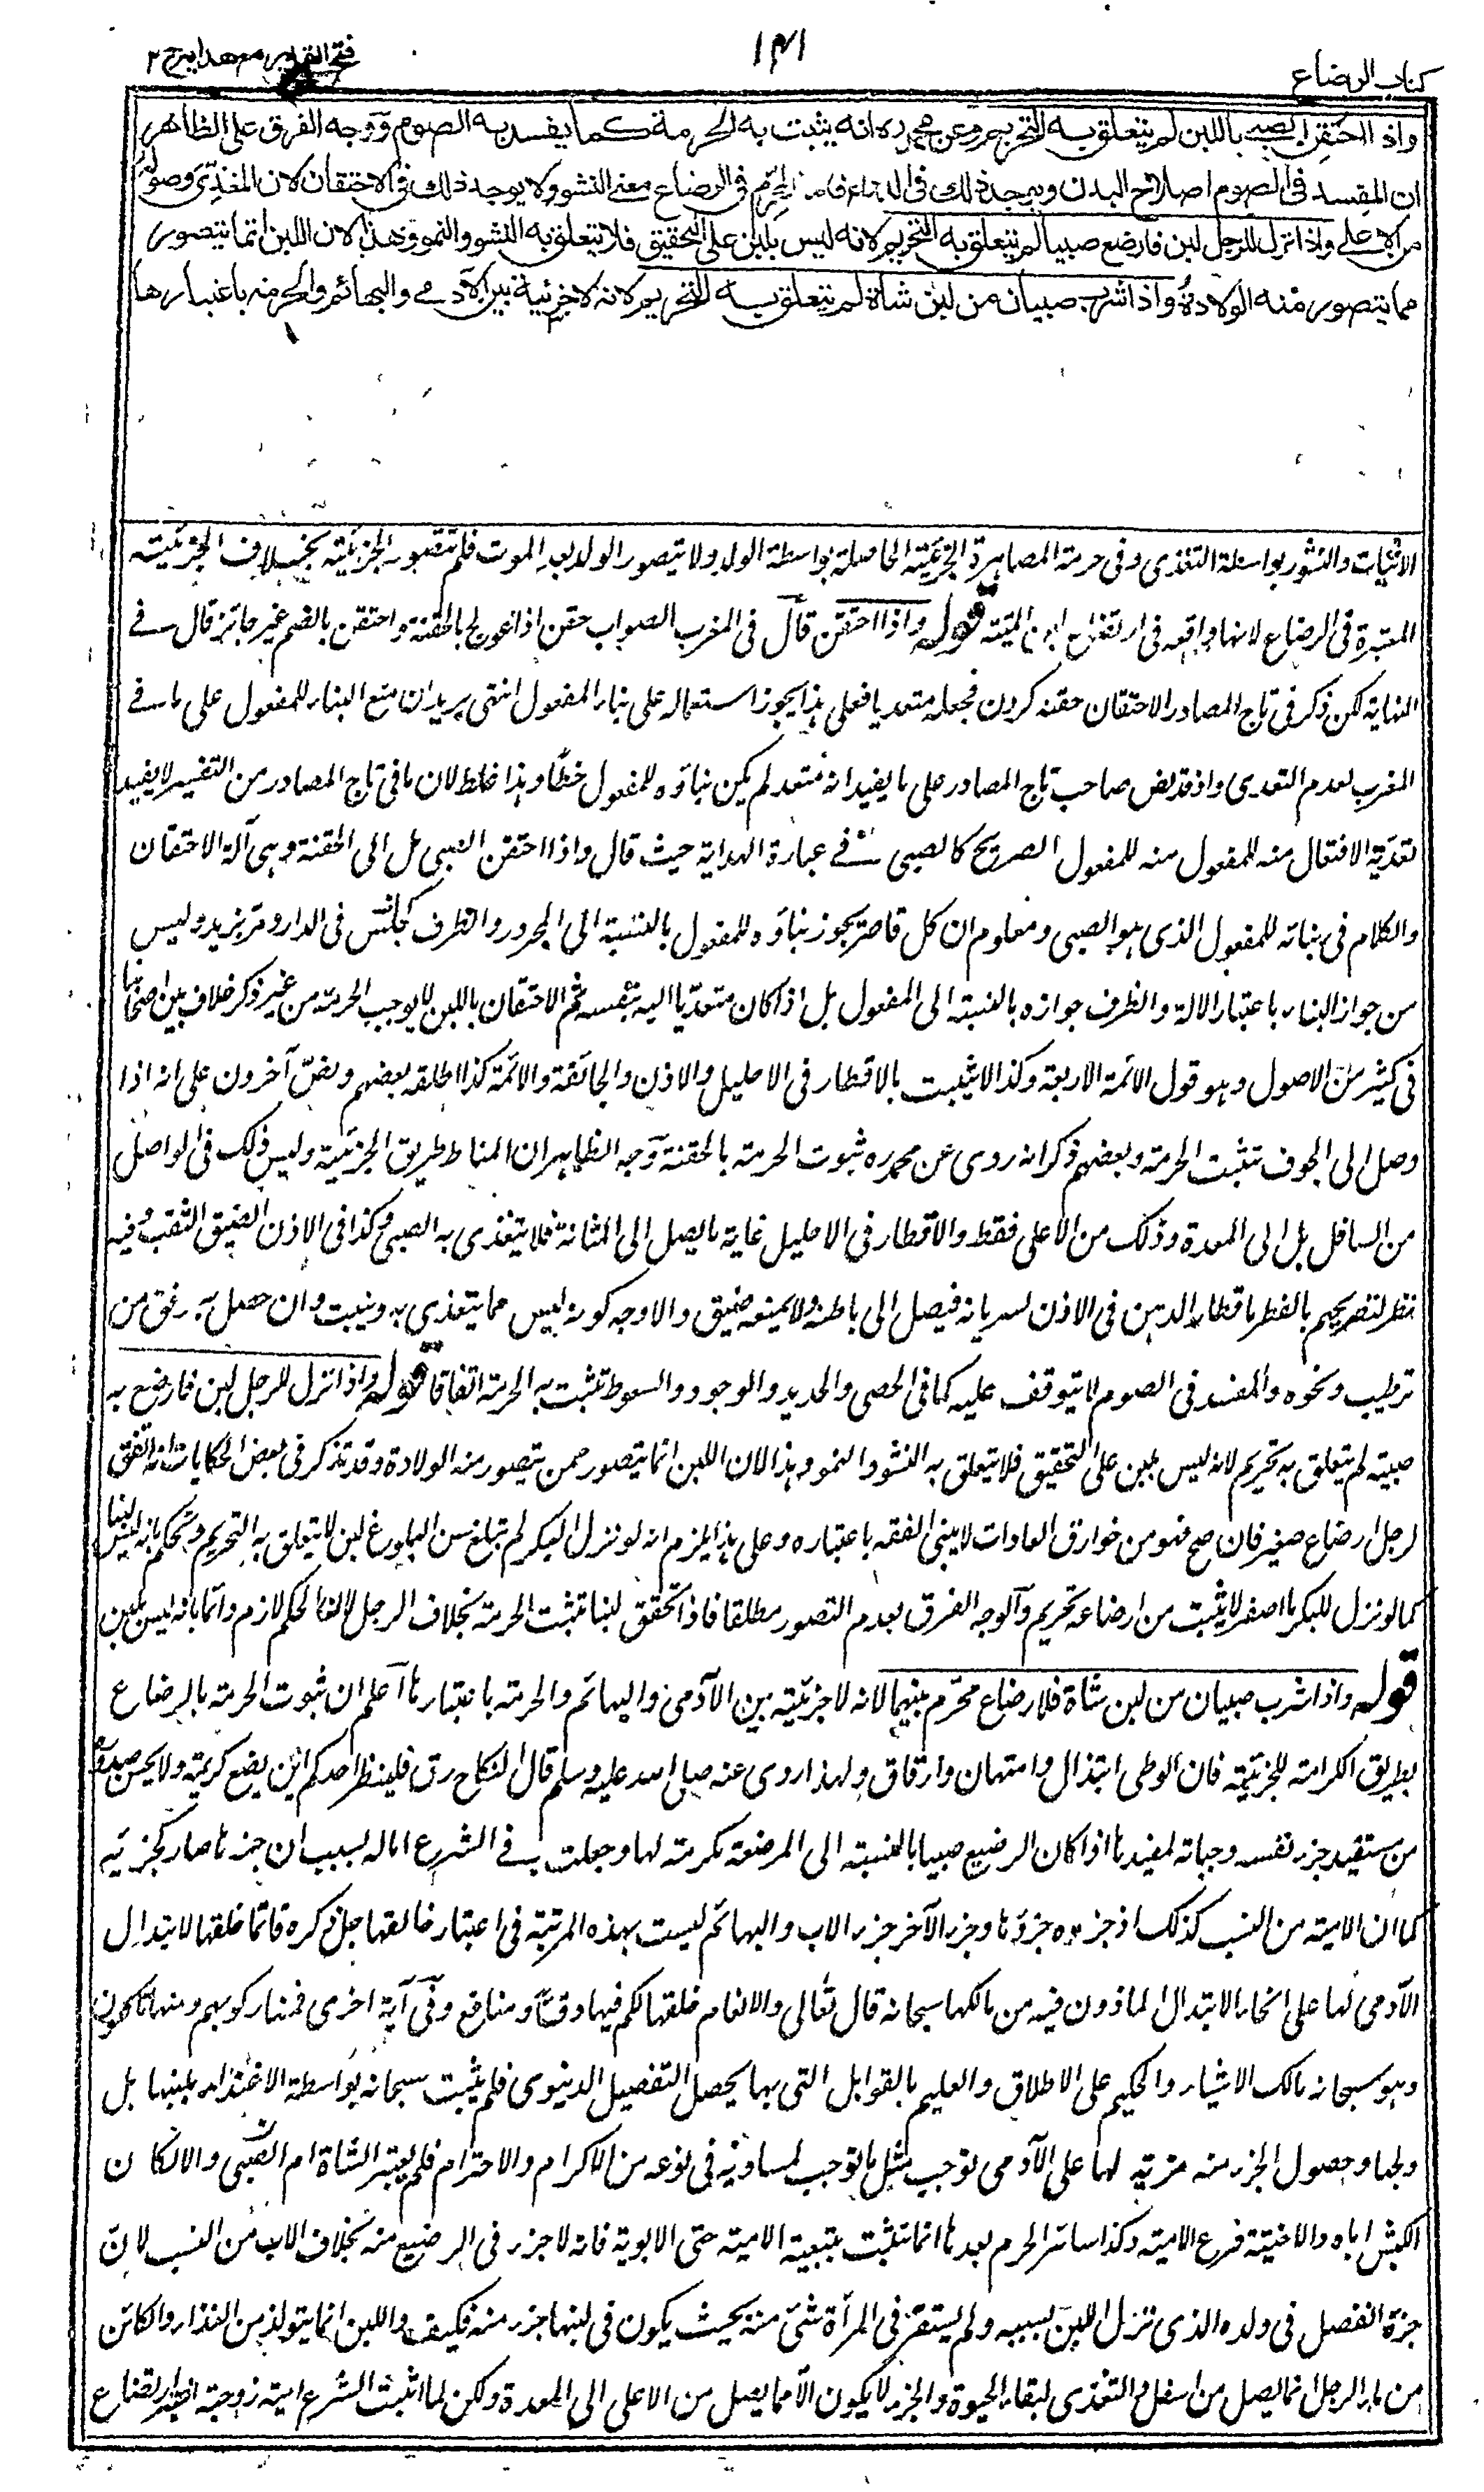 كتاب الرضاع
١٤١
فتح القدير مع هدايه ج ٢
واذا احتقن الصبي باللبن لم يتعلق به التحريم وعن محمد ره انه يثبت به الحرمة كما يفسد به الصوم ووجه الفرق على الظاهر
ان المفسد في الصوم اصلاح البدن ويوجد ذلك في الدواء فاما المحرم في الرضاع معنى النشو ولا يوجد ذلك في الاحتقان لان المغذى وصوله
من الاعلى واذا نزل للرجل لبن فارضع صبيا لم يتعلق به التحريم لانه ليس بلبن على التحقيق فلا يتعلق به النشو والنمو وهذا لان اللبن انما يتصور
مما يتصور منه الولادة واذا شرب صبيان من لبن شاة لم يتعلق به التحريم لانه لا جزئية بين الآدمى والبهائم والحرمة باعتبارها
الانبات والنشور بواسطة التغذى وفى حرمة المصاهرة الجزئية الحاصلة بواسطة الولد ولا يتصور الولد بعد الموت فلم تتصور الجزئية بخلاف الجزئية
المعتبرة فى الرضاع لانها واقعه فى ارتضاع لبن الميتة قوله واذا احتقن قال فى المغرب الصواب حقن اذا عولج بالحقنة واحتقن بالضم غير جائز قال فے
النهاية لكن ذكر فى تاج المصادر الاحتقان حقنه كردن فجعله متعديا فعلى هذا يجوز استعماله على بناء المفعول انتهى يريد ان منع البناء للمفعول على ما فے
المغرب لعدم التعدى واذ قد نص صاحب تاج المصادر على ما يفيد انه متعد لم يكن بناؤه للمفعول خطأ وهذا غلط لان ما فى تاج المصادر من التفسير لا يفيد
تعدية الافتعال منه للمفعول منه للمفعول الصريح كالصبى فے عبارة الهداية حيث قال واذا احتقن الصبى بل الى الحقنة وهى آلة الاحتقان
والكلام فى بنائه للمفعول الذى هو الصبى ومعلوم ان كل قاصر يجوز بناؤه للمفعول بالنسبة الى المجرور والظرف كجلس فى الدار ومر بزيد وليس
من جواز البناء باعتبار الالة والظرف جوازه بالنسبة الى المفعول بل اذا كان متعديا اليه بنفسه ثم الاحتقان باللبن لا يوجب الحرمة من غير ذكر خلاف بين اصحابنا
فى كثير من الاصول وهو قول الائمة الاربعة وكذا لا يثبت بالاقطار فى الاحليل والاذن والجائفة والآمة كذا اطلقه بعضهم ونص آخرون على انه اذا
وصل الى الجوف تثبت الحرمة وبعضهم ذكر انه روى عن محمد ره ثبوت الحرمة بالحقنة وجه الظاهر ان المناط طريق الجزئية وليس ذلك فى الواصل
من السافل بل الى المعدة وذلك من الاعلى فقط والاقطار فى الاحليل غاية ما يصل الى المثانة فلا يتغذى به الصبى وكذا فى الاذن لضيق الثقب وفيه
نظر لتصريحهم بالفطر باقطار الدهن فى الاذن لسريانه فيصل الى باطنه ولا يمنعه ضيق والاوجه كونه ليس مما يتغذى به وينبت وان حصل به رفق من
ترطيب ونحوه والمفسد فى الصوم لا يتوقف عليه كما فى الحصى والحديد والوجور والسعوط تثبت به الحرمة اتفاقا قوله واذا نزل للرجل لبن فارضع به
صبية لم يتعلق به تحريم لانه ليس بلبن على التحقيق فلا يتعلق به النشو والنمو وهذا لان اللبن انما يتصور ممن يتصور منه الولادة وقد تذكر فى بعض الحكايات انه اتفق
لرجل ارضاع صغير فان صح فهو من خوارق العادات لا يبنى الفقه باعتباره وعلى هذا يلزم انه لو نزل لبكر لم تبلغ سن البلوغ لبن لا يتعلق به التحريم وتحكم بانه ليس لبنا
كما لو نزل للبكر ماء اصفر لا يثبت من ارضاعه تحريم والوجه الفرق بعدم التصور مطلقا فاذا تحقق لبنا تثبت الحرمة بخلاف الرجل لان الحكم لازم دائما بانه ليس بلبن
قوله واذا شرب صبيان من لبن شاة فلا رضاع محرم بينهما لانه لا جزئية بين الآدمى والبهائم والحرمة باعتبارها اعلم ان ثبوت الحرمة بالرضاع
بطريق الكرامة للجزئية فان الوطى ابتذال وامتهان وارقاق ولهذا روى عنه صلى الله عليه وسلم قال النكاح رق فلينظر احدكم اين يضع كريمته ولا يحسن صدوره
من مستفيد جزء نفسه وحياته لمفيدها اذا كان الرضيع صبيا بالنسبة الى المرضعة تكرمة لها وجعلت فے الشرع اما له بسبب ان جزءها صار كجزئيه
كما ان الامية من النسب كذلك اذ جزءوه جزؤها وجزء الآخر جزء الاب والبهائم ليست بهذه المرتبة فى اعتبار خالقها جل ذكره فانما خلقها لابتذال
الآدمى لها على انحاء الابتذال الماذون فيه من مالكها سبحانه قال تعالى والانعام خلقها لكم فيها دفء ومنافع وفى آية اخرى فمنها ركوبهم ومنها ياكلون
وهو سبحانه مالك الاشياء والحكيم على الاطلاق والعليم بالقوابل التى بها يحصل التفصيل الدنيوى فلم يثبت سبحانه بواسطة الاغتذاء بلبنها بل
ولحمها وحصول الجزء منه مزية لها على الآدمى توجب مثل ما توجب لمساويه فى نوعه من الاكرام والاحترام فلم يعتبر الشاة ام الصبى والا لكان
الكبش اباه والاختية فرع الامية وكذا سائر الحرم بعدها انما تثبت بتبعية الامية حتى الابوية فانه لا جزء فى الرضيع منه بخلاف الاب من النسب لان
جزءه انفصل فى ولده الذى نزل اللبن بسببه ولم يستقر فى المرأة شئ منه بحيث يكون فى لبنها جزء منه فكيف واللبن انما يتولد من الغذاء والكائن
من ماء الرجل انما يصل من اسفل والتغذى لبقاء الحيوة والجزء لا يكون الا مما يصل من الاعلى الى المعدة ولكن لما اثبت الشرع امية زوجته ارتضاع